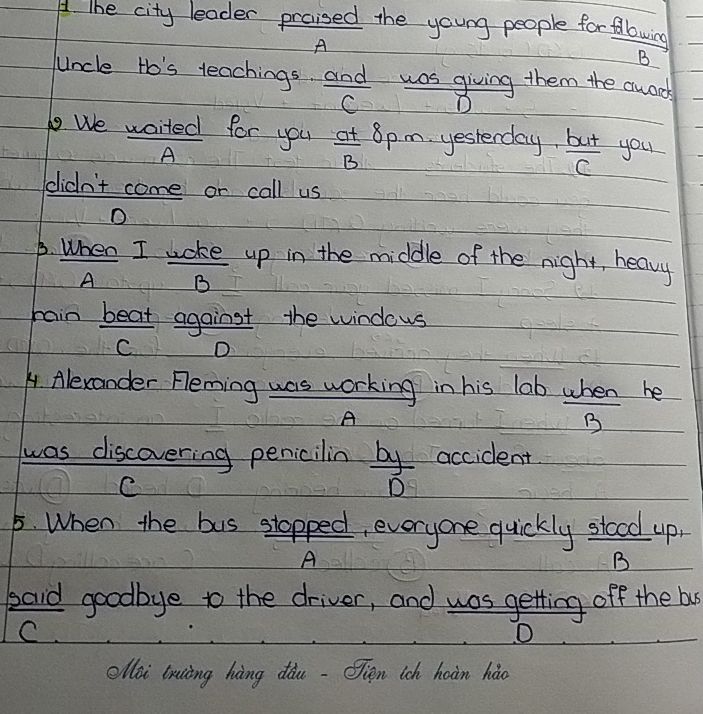 1 The city leader praised the young people for following
A B
Uncle Ho's teachings. and was giving them the award
C D
2 We waited for you at 8p.m. yesterday, but you
A B C
didn't come or call us
D
3. When I woke up in the middle of the night, heavy
A B
rain beat against the windows
C D
4. Alexander Fleming was working in his lab when he
A B
was discovering penicilin by accident
C D
5. When the bus stopped, everyone quickly stood up,
A B
said goodbye to the driver, and was getting off the bus
C D
Môi trường hàng đầu - Tiện ích hoàn hảo